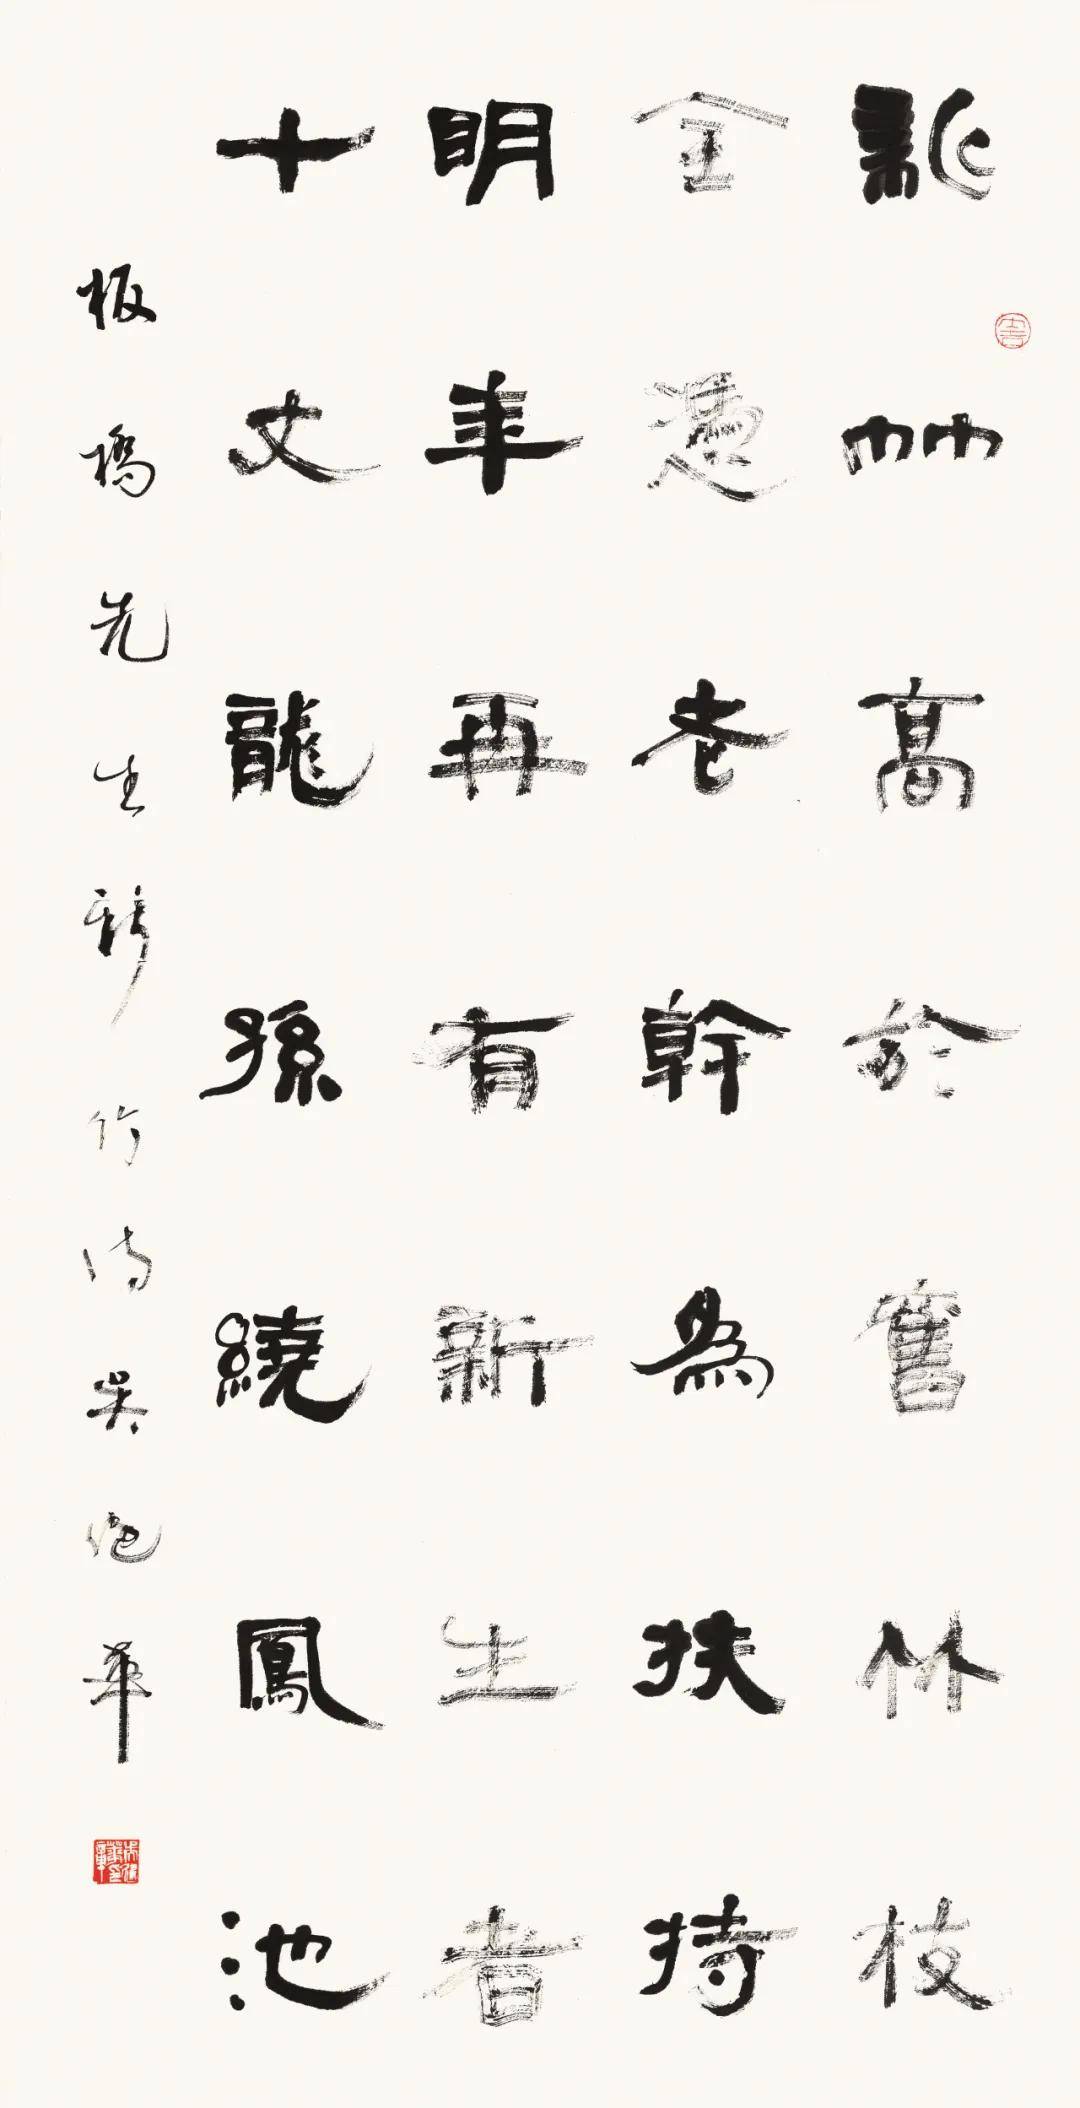 新竹高於舊竹枝
全憑老幹為扶持
明年再有新生者
十丈龍孫繞鳳池
板橋先生新竹詩吴華